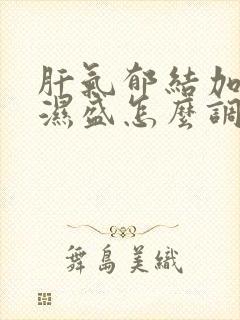 肝氣郁結加
濕盛怎麼調
舞島美織